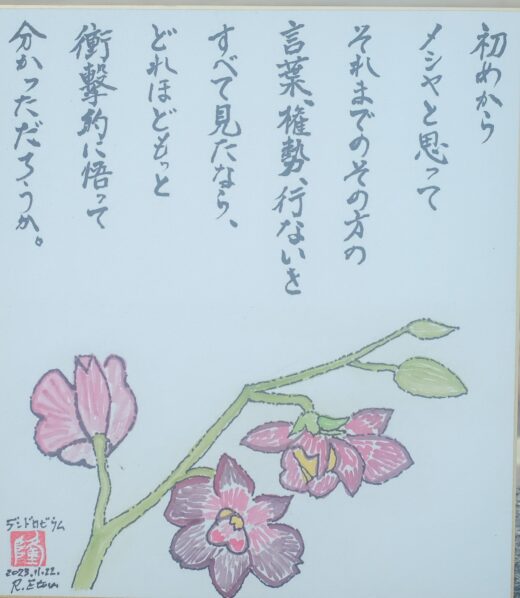 初めから
メシヤと思って
それまでのその方の
言葉、権勢、行ないを
すべて見たなら、
どれほどもっと
衝撃的に悟って
分かっただろうか。
デンドロビウム
隆
2023.11.22.